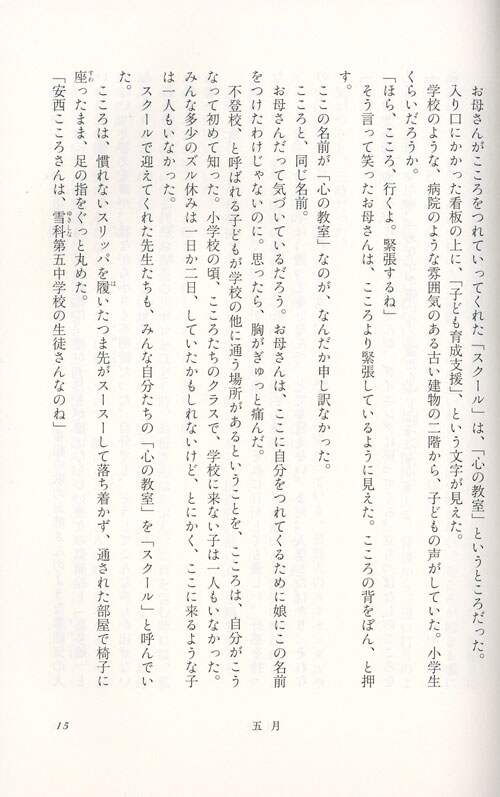 お母さんがこころをつれていってくれた「スクール」は、「心の教室」というところだった。
入り口にかかった看板の上に、「子ども育成支援」、という文字が見えた。
学校のような、病院のような雰囲気のある古い建物の二階から、子どもの声がしていた。小学生
くらいだろうか。
「ほら、こころ、行くよ。緊張するね」
そう言って笑ったお母さんは、こころより緊張しているように見えた。こころの背をぽん、と押
す。
ここの名前が「心の教室」なのが、なんだか申し訳なかった。
こころと、同じ名前。
お母さんだって気づいているだろう。お母さんは、ここに自分をつれてくるために娘にこの名前
をつけたわけじゃないのに。思ったら、胸がぎゅっと痛んだ。
不登校、と呼ばれる子どもが学校の他に通う場所があるということを、こころは、自分がこう
なって初めて知った。小学校の頃、こころたちのクラスで、学校に来ない子は一人もいなかった。
みんな多少のズル休みは一日か二日、していたかもしれないけど、とにかく、ここに来るような子
は一人もいなかった。
スクールで迎えてくれた先生たちも、みんな自分たちの「心の教室」を「スクール」と呼んでい
た。
こころは、慣れないスリッパを履いたつま先がスースーして落ち着かず、通された部屋で椅子に
座ったまま、足の指をぐっと丸めた。
「安西こころさんは、雪科第五中学校の生徒さんなのね」
五月
15